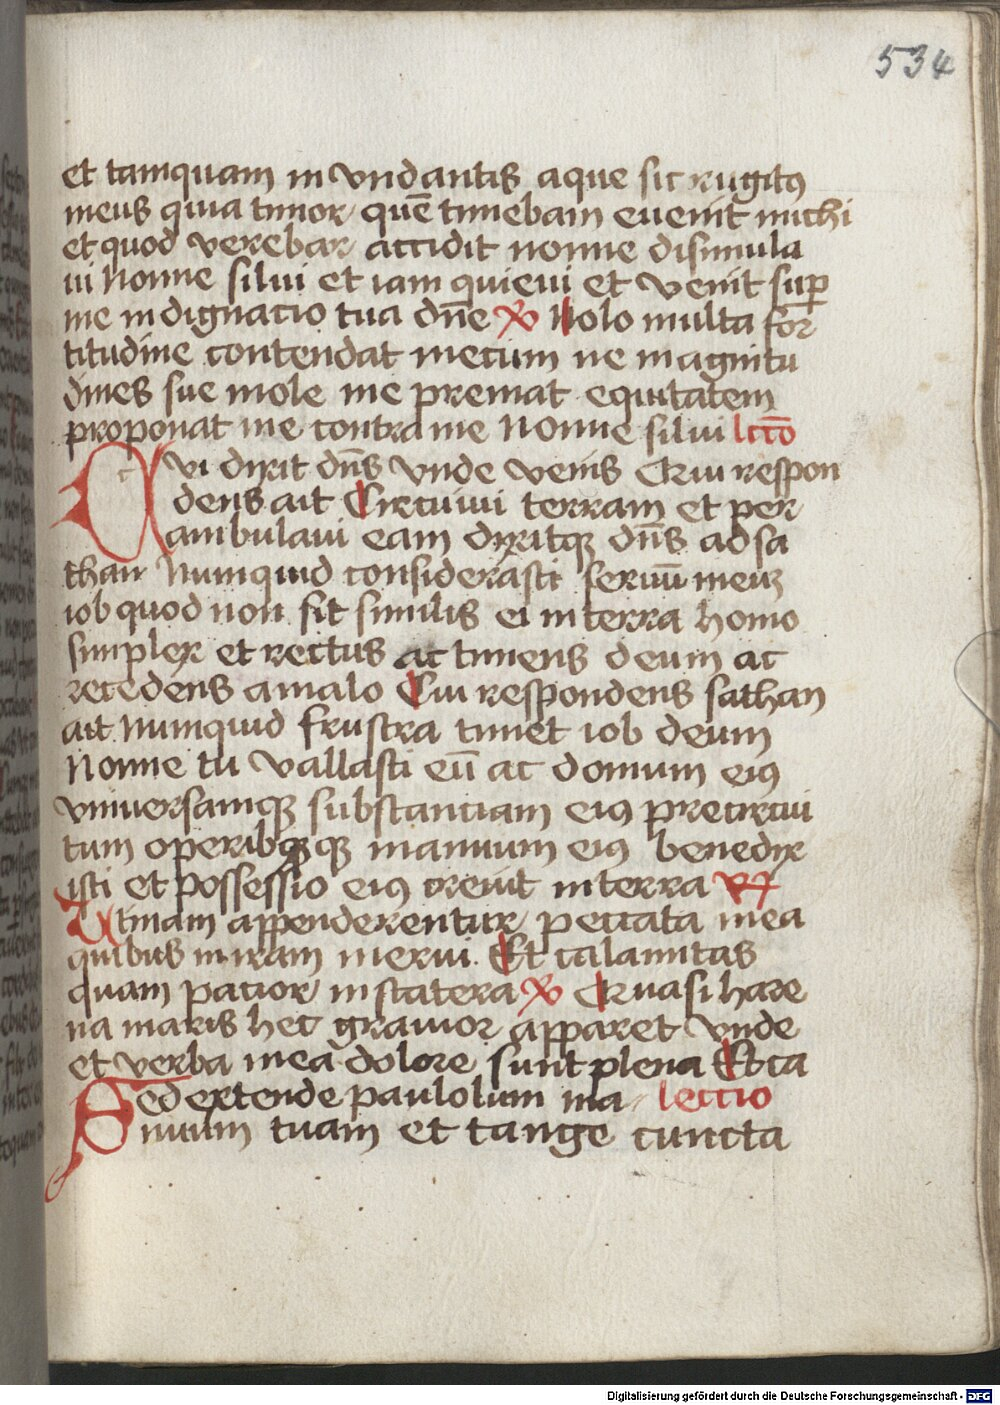 534
et tamquam in vndantis aque sic rugitꝰ
meus quia timor quē timebam euenit michi
et quod verebar accidit nonne disimula
ui Nonne silui et iam quieui et venit suꝑ
me indignacio tua dn̄e ℣ Nolo multa for
titudine contendat mecum ne magnitu
dines sue mole me premat equitatem
proponat me contra me Nonne silui lcc̄o
Cui dixit dn̄s vnde venis Qui respon
dens ait Circuiui terram et per
ambulaui eam dixitqꝫ dn̄s ad sa
than Numquid considerasti seruū meuꝫ
iob quod non sit similis ei in terra homo
simplex et rectus ac timens deum ac
recedens a malo Cui respondens sathan
ait Numquid frustra timet iob deum
Nonne tu vallasti eū ac domum eiꝰ
vniuersamqꝫ substanciam eiꝰ precircui
tum operibꝫqꝫ manuum eiꝰ benedix
isti et possessio eiꝰ creuit in terra ℟
Utinam appenderentur peccata mea
quibus in iram merui. Et calamitas
quam pacior in statera ℣ Quasi hare
na maris hec grauior apparet vnde
et verba mea dolore sunt plena Et ca
Sed extende paulolum ma lectio
nuum tuam et tange cuncta
Digitalisierung gefördert durch die Deutsche Forschungsgemeinschaft - DFG